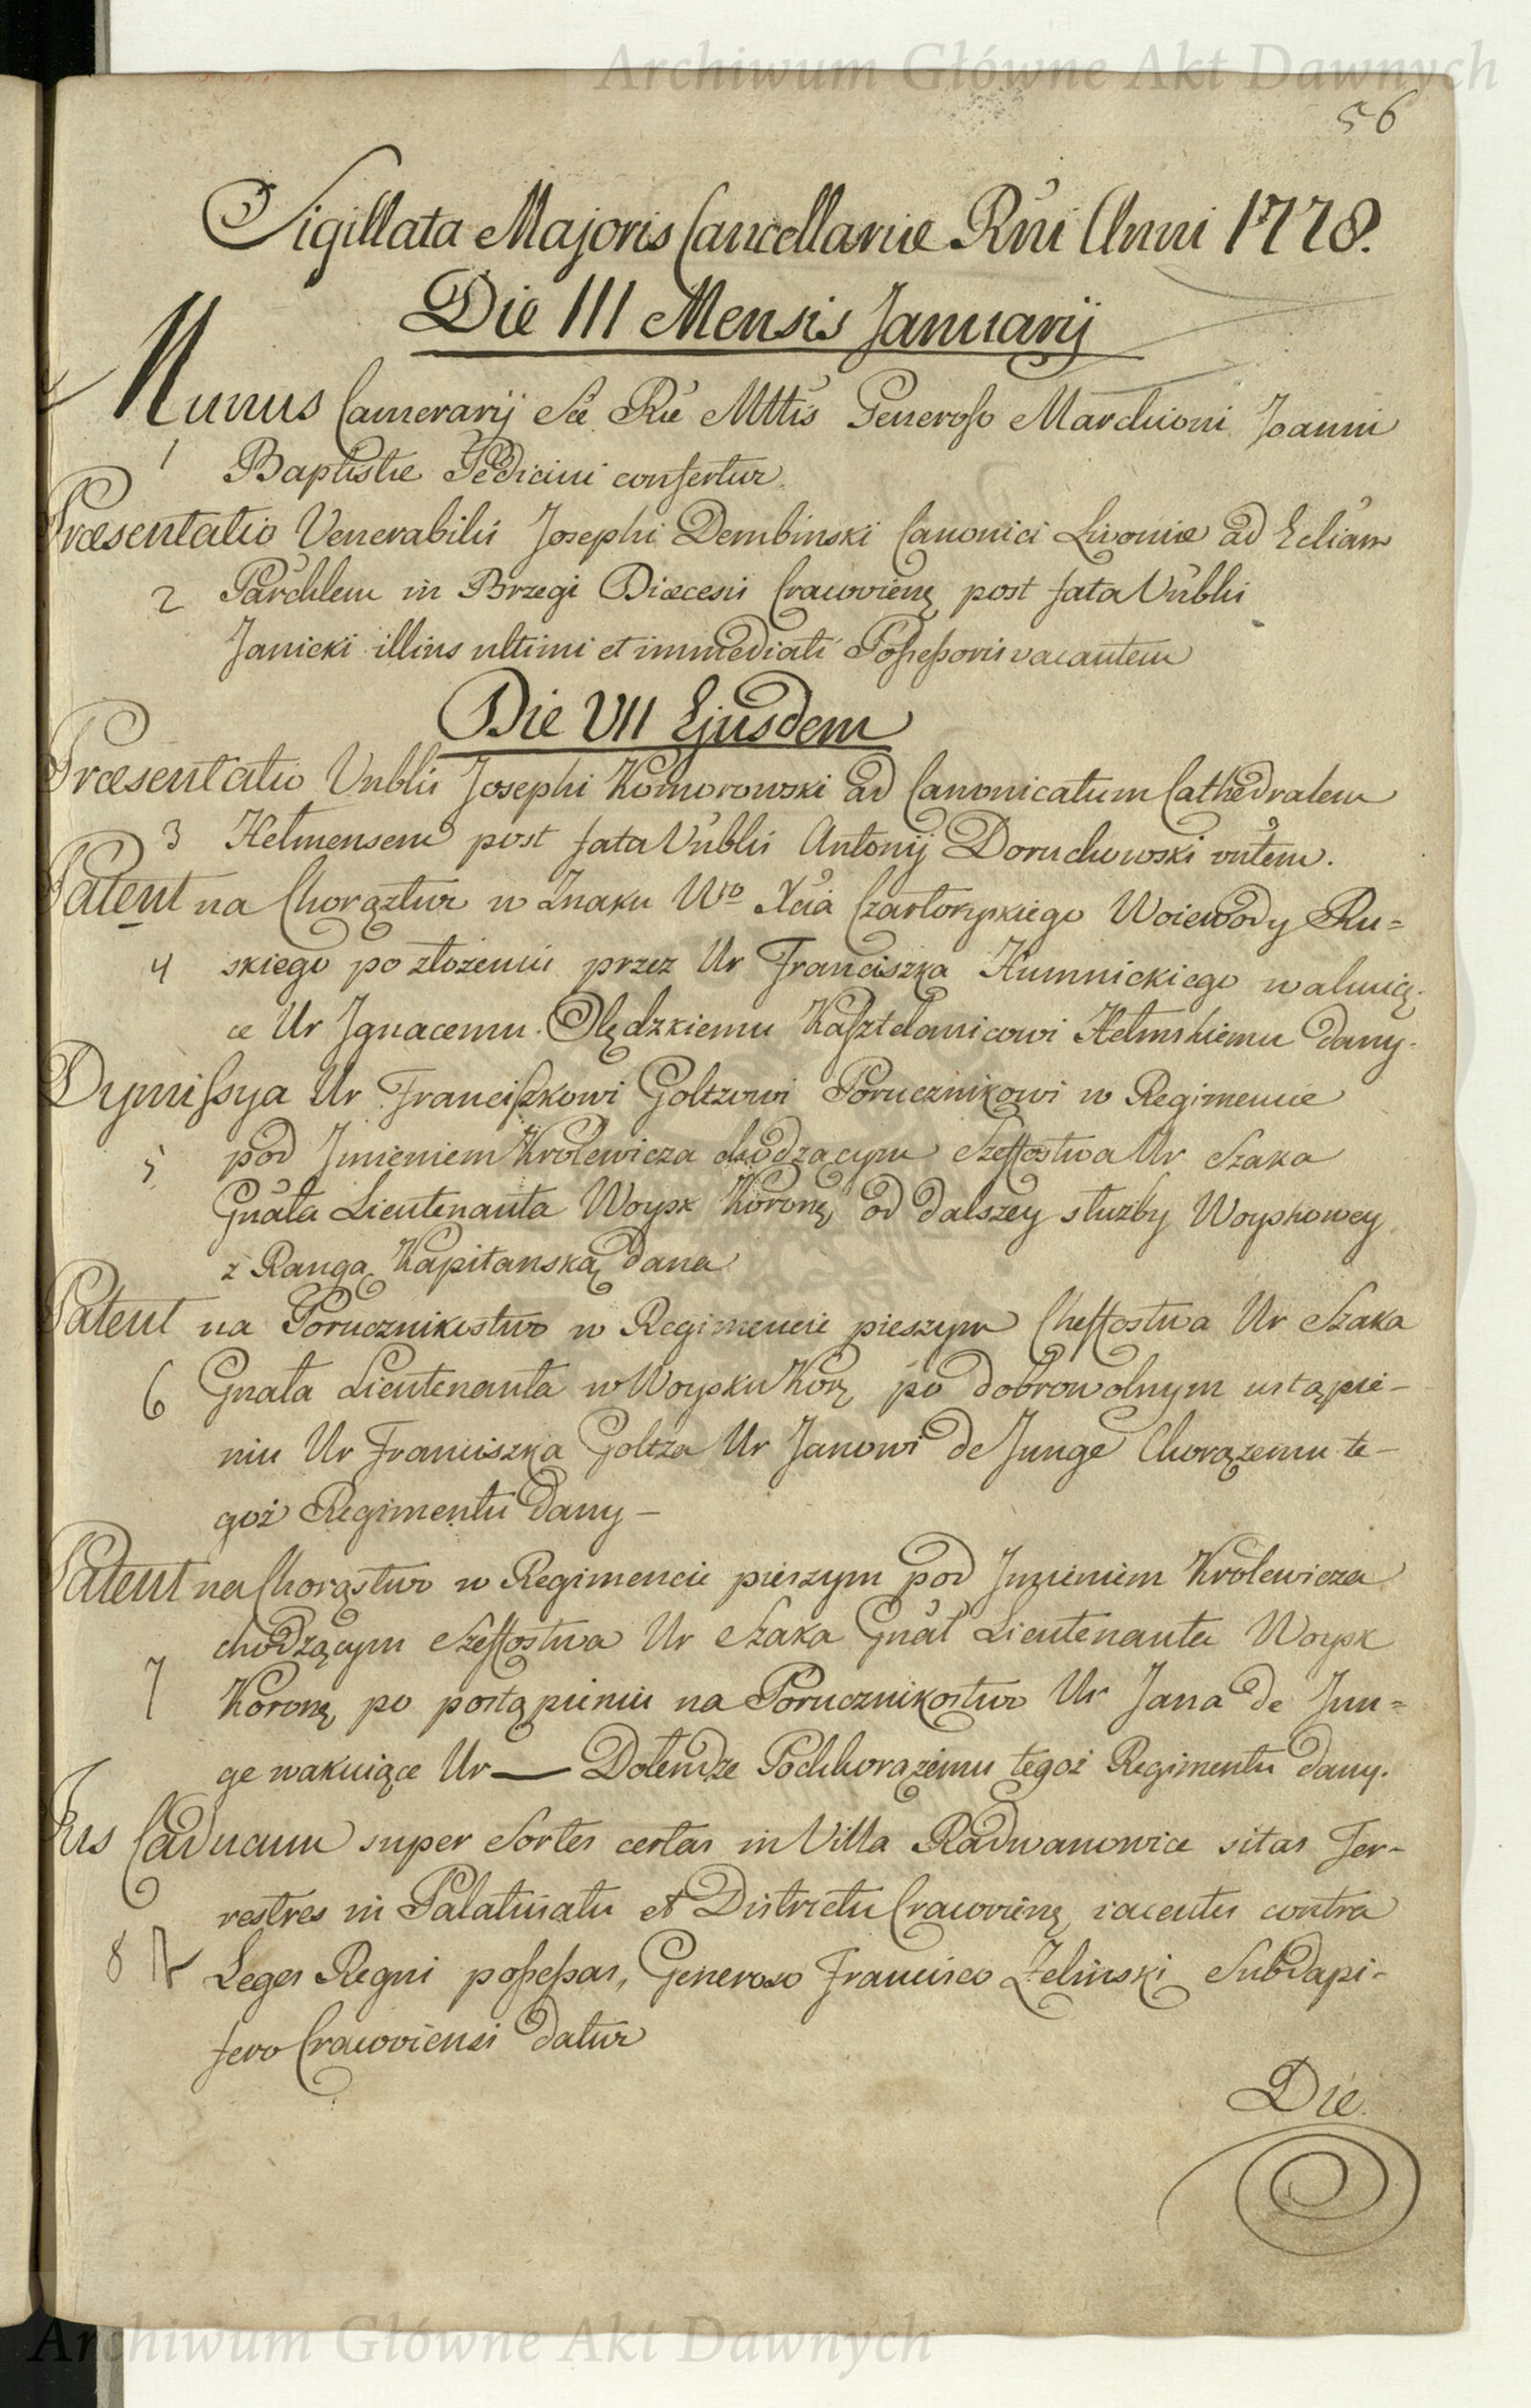 Archiwum Główne Akt Dawnych
56
Sigillata Majoris Cancellariæ Rńi Anni 1778.
Die III Mensis Januarij
Munus Camerarij Sæ Ræ Mttis Generoso Marchioni Joanni
1 Baptistæ Pedicini confertur
Præsentatio Venerabilis Josephi Dembinski Canonici Livoniæ ad Ecliam
2 Parchlem in Brzegi Diæcesis Cracovień post fata Vńblis
Janicki illius ultimi et immediati Possessoris vacantem
Die VII Ejusdem
Præsentatio Vnblis Josephi Komorowski ad Canonicatum Cathedralem
3 Helmensem post fata Vńblis Antonij Doruchowski vńtem.
Patent na Chorąztwo w Znaku Wgo Xcia Czartoryskiego Woiewody Ru=
4 skiego po złożeniu przez Ur Franciszka Humnickiego wakuią-
ce Ur Jgnacemu Olędzkiemu Kasztelanicowi Helmskiemu dany.
Dymissya Ur Franciszkowi Goltzowi Porucznikowi w Regimencie
5 pod Jmieniem Krolewicza chodzącym Szeffostwa Ur Szaka
Gńała Lieutenanta Woysk Koronę od dalszey służby Woyskowey
z Rangą Kapitanską dana
Patent na Porucznikostwo w Regimencie pieszym Cheffostwa Ur Szaka
6 Gnała Lieutenanta w Woysku Korę po dobrowolnym ustąpie-
niu Ur Franciszka Goltza Ur Janowi de Junge Chorązemu te-
goż Regimentu dany -
Patent na Chorąstwo w Regimencie pieszym pod Jmieniem Krolewicza
chodzącym Szeffostwa Ur Szaka Gńał Lieutenanta Woysk
7 Koronę po postąpieniu na Porucznikostwo Ur Jana de Jun=
ge wakuiące Ur — Dolendze Podchorązemu tegoż Regimentu dany.
Jus Caducum super Sortes certas in Villa Radwanowice sitas Ter-
restres in Palatinatu et Districtu Cracovienę iacentes contra
8 Leges Regni possessas, Generoso Francisco Zelinski Subdapi-
fero Cracoviensi datur
Die
Archiwum Główne Akt Dawnych